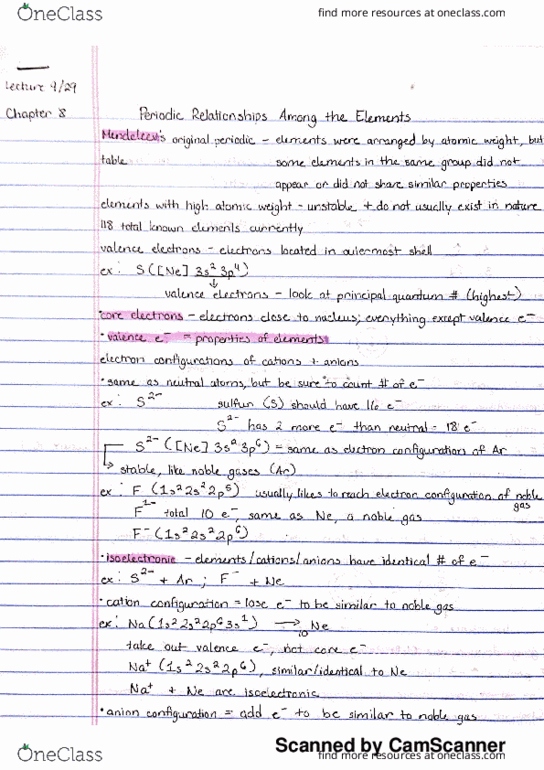 OneClass
find more resources at oneclass.com
Lecture 4/29
Chapter 8
Periodic Relationships Among the Elements
Mendeleev's original periodic - elements were arranged by atomic weight, but
table some elements in the same group did not
appear or did not share similar properties
elements with high atomic weight - unstable + do not usually exist in nature
118 total known elements currently
valence electrons - electrons located in outermost shell
ex: S([Ne] 3s² 3p⁴)
↓
valence electrons - look at principal quantum # (highest)
•core electrons - electrons close to nucleus; everything except valence e⁻
•valence e⁻ = properties of elements
electron configurations of cations + anions
•same as neutral atoms, but be sure to count # of e⁻
ex: S²⁻ sulfur (S) should have 16 e⁻
S²⁻ has 2 more e⁻ than neutral = 18 e⁻
S²⁻ ([Ne] 3s² 3p⁶) = same as electron configuration of Ar
↳ stable, like noble gases (Ar)
ex: F (1s² 2s² 2p⁵) usually likes to reach electron configuration of noble
gas
F¹⁻ total 10 e⁻, same as Ne, a noble gas
F⁻ (1s² 2s² 2p⁶)
•isoelectronic - elements/cations/anions have identical # of e⁻
ex: S²⁻ + Ar ; F⁻ + Ne
•cation configuration = lose e⁻ to be similar to noble gas
ex: Na (1s² 2s² 2p⁶ 3s¹) → ₁₀Ne
take out valence e⁻, not core e⁻
Na⁺ (1s² 2s² 2p⁶), similar/identical to Ne
Na⁺ + Ne are isoelectronic
•anion configuration = add e⁻ to be similar to noble gas
Scanned by CamScanner
OneClass
find more resources at oneclass.com